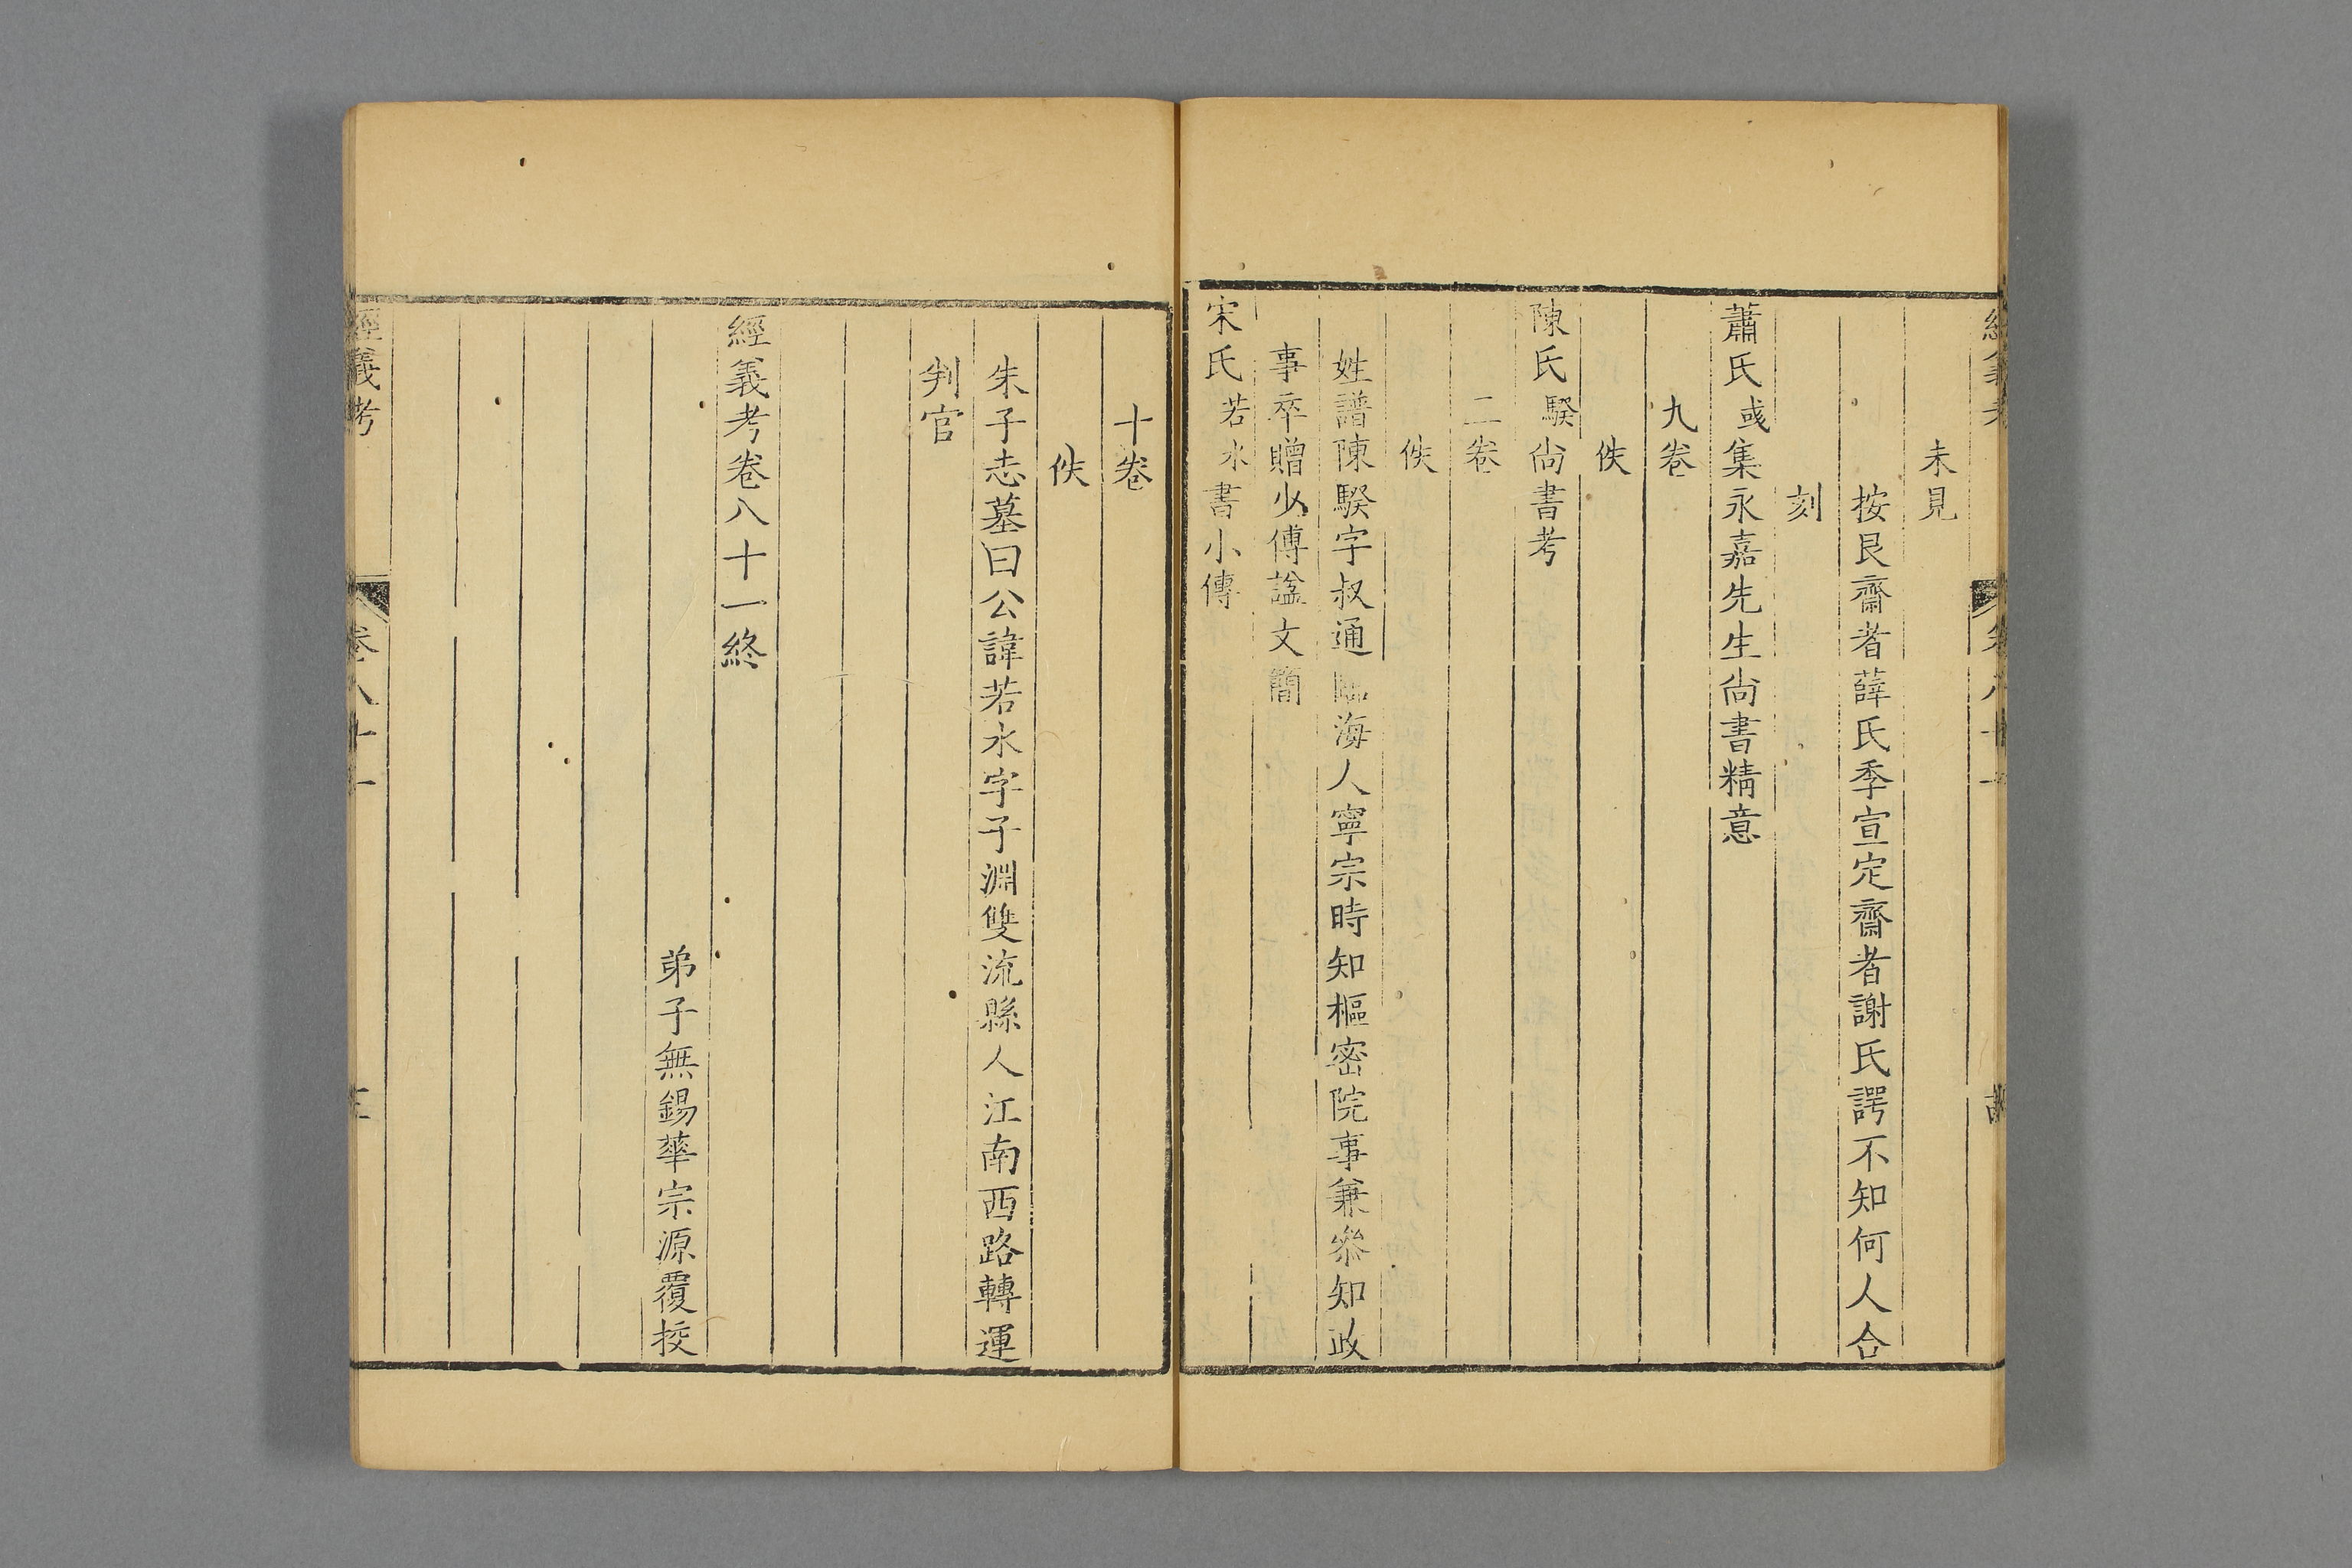 未見
按艮齋者薛氏季宣定齋者謝氏諤不知何人合
刻
蕭氏彧集永嘉先生尚書精意
九卷
佚
陳氏騤尚書考
二卷
佚
姓譜陳騤字叔通臨海人寧宗時知樞密院事兼參知政
事卒贈少傅諡文簡
宋氏若水書小傳
十卷
佚
朱子志墓曰公諱若水字子淵雙流縣人江南西路轉運
判官
經義考卷八十一終
弟子無錫華宗源覆挍
經義考 卷八十一